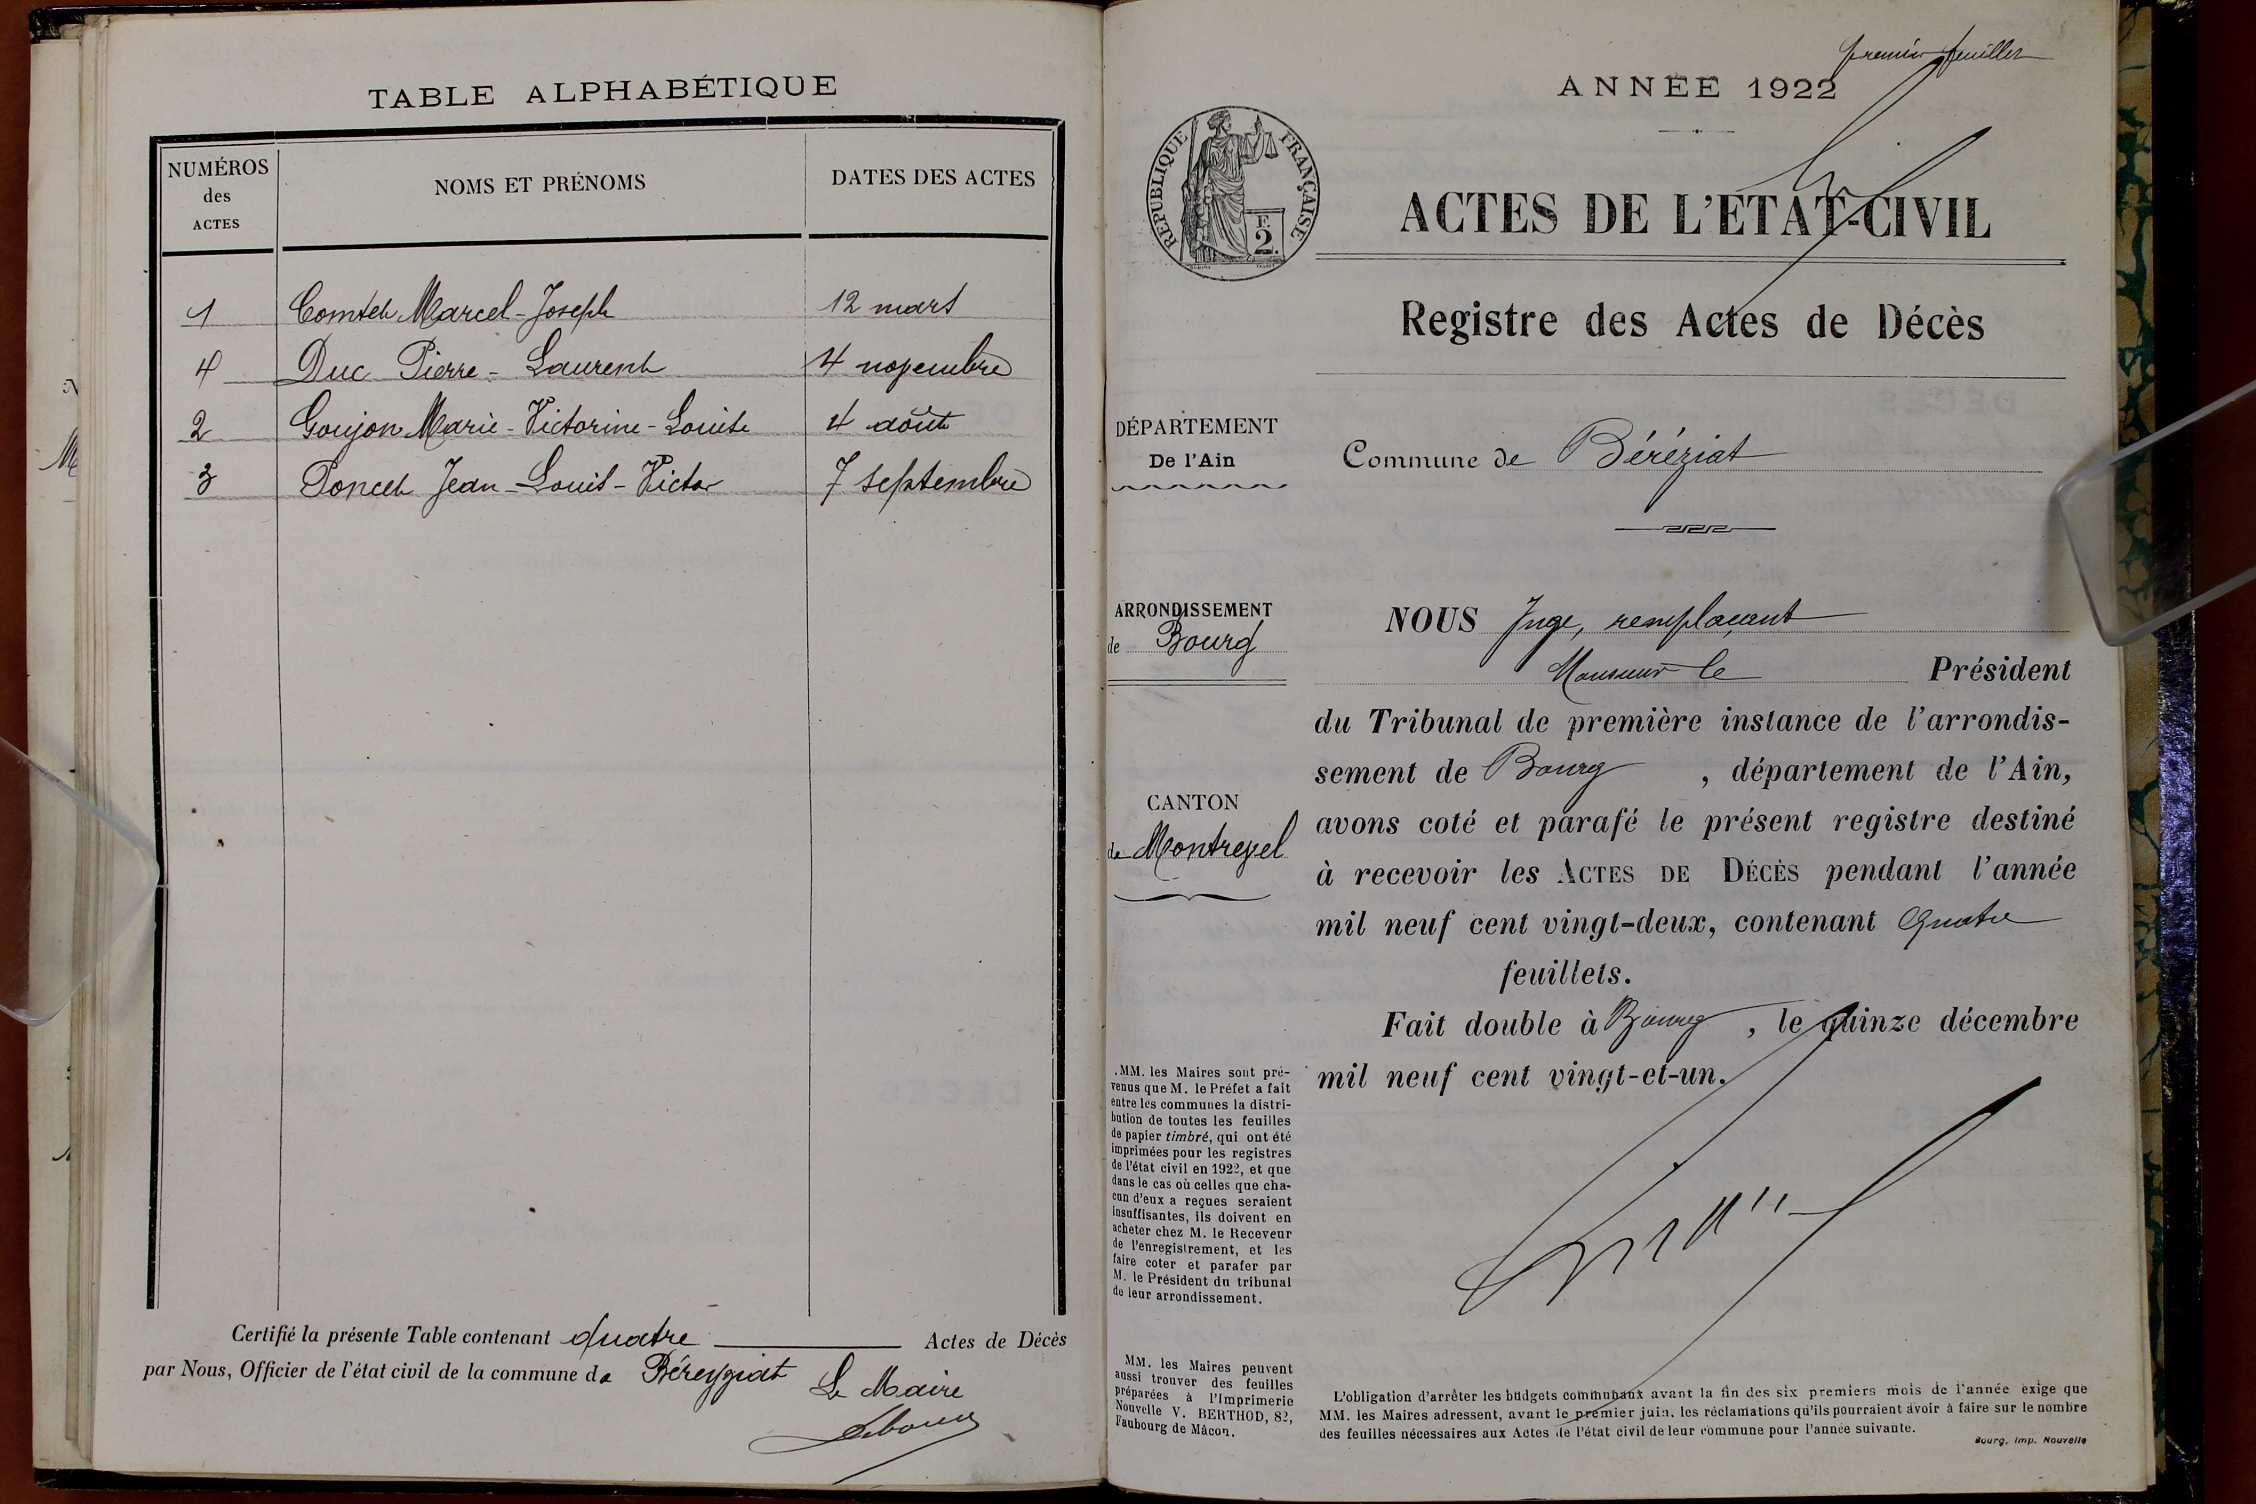 TABLE ALPHABÉTIQUE
NUMÉROS
des
ACTES
NOMS ET PRÉNOMS
DATES DES ACTES
1 Comtet Marcel-Joseph 12 mars
4 Duc Pierre-Laurent 4 novembre
2 Goujon Marie-Victorine-Louise 4 août
3 Poncet Jean-Louis-Victor 7 septembre
Certifié la présente Table contenant quatre Actes de Décès
par Nous, Officier de l'état civil de la commune de Béreyziat
Le Maire
premier feuillet
ANNÉE 1922
RÉPUBLIQUE FRANÇAISE
2 F.
ACTES DE L'ETAT-CIVIL
Registre des Actes de Décès
DÉPARTEMENT
De l'Ain
Commune de Béréziat
ARRONDISSEMENT
de Bourg
CANTON
de Montrevel
NOUS Juge, remplaçant
Monsieur le Président
du Tribunal de première instance de l'arrondis-
sement de Bourg, département de l'Ain,
avons coté et parafé le présent registre destiné
à recevoir les ACTES DE DÉCÈS pendant l'année
mil neuf cent vingt-deux, contenant Quatre
feuillets.
Fait double à Bourg, le quinze décembre
mil neuf cent vingt-et-un.
MM. les Maires sont pré-
venus que M. le Préfet a fait
entre les communes la distri-
bution de toutes les feuilles
de papier timbré, qui ont été
imprimées pour les registres
de l'état civil en 1922, et que
dans le cas où celles que cha-
cun d'eux a reçues seraient
insuffisantes, ils doivent en
acheter chez M. le Receveur
de l'enregistrement, et les
faire coter et parafer par
M. le Président du tribunal
de leur arrondissement.
MM. les Maires peuvent
aussi trouver des feuilles
préparées à l'Imprimerie
Nouvelle V. BERTHOD, 82,
Faubourg de Mâcon.
L'obligation d'arrêter les budgets communaux avant la fin des six premiers mois de l'année exige que
MM. les Maires adressent, avant le premier juin, les réclamations qu'ils pourraient avoir à faire sur le nombre
des feuilles nécessaires aux Actes de l'état civil de leur commune pour l'année suivante.
Bourg, Imp. Nouvelle